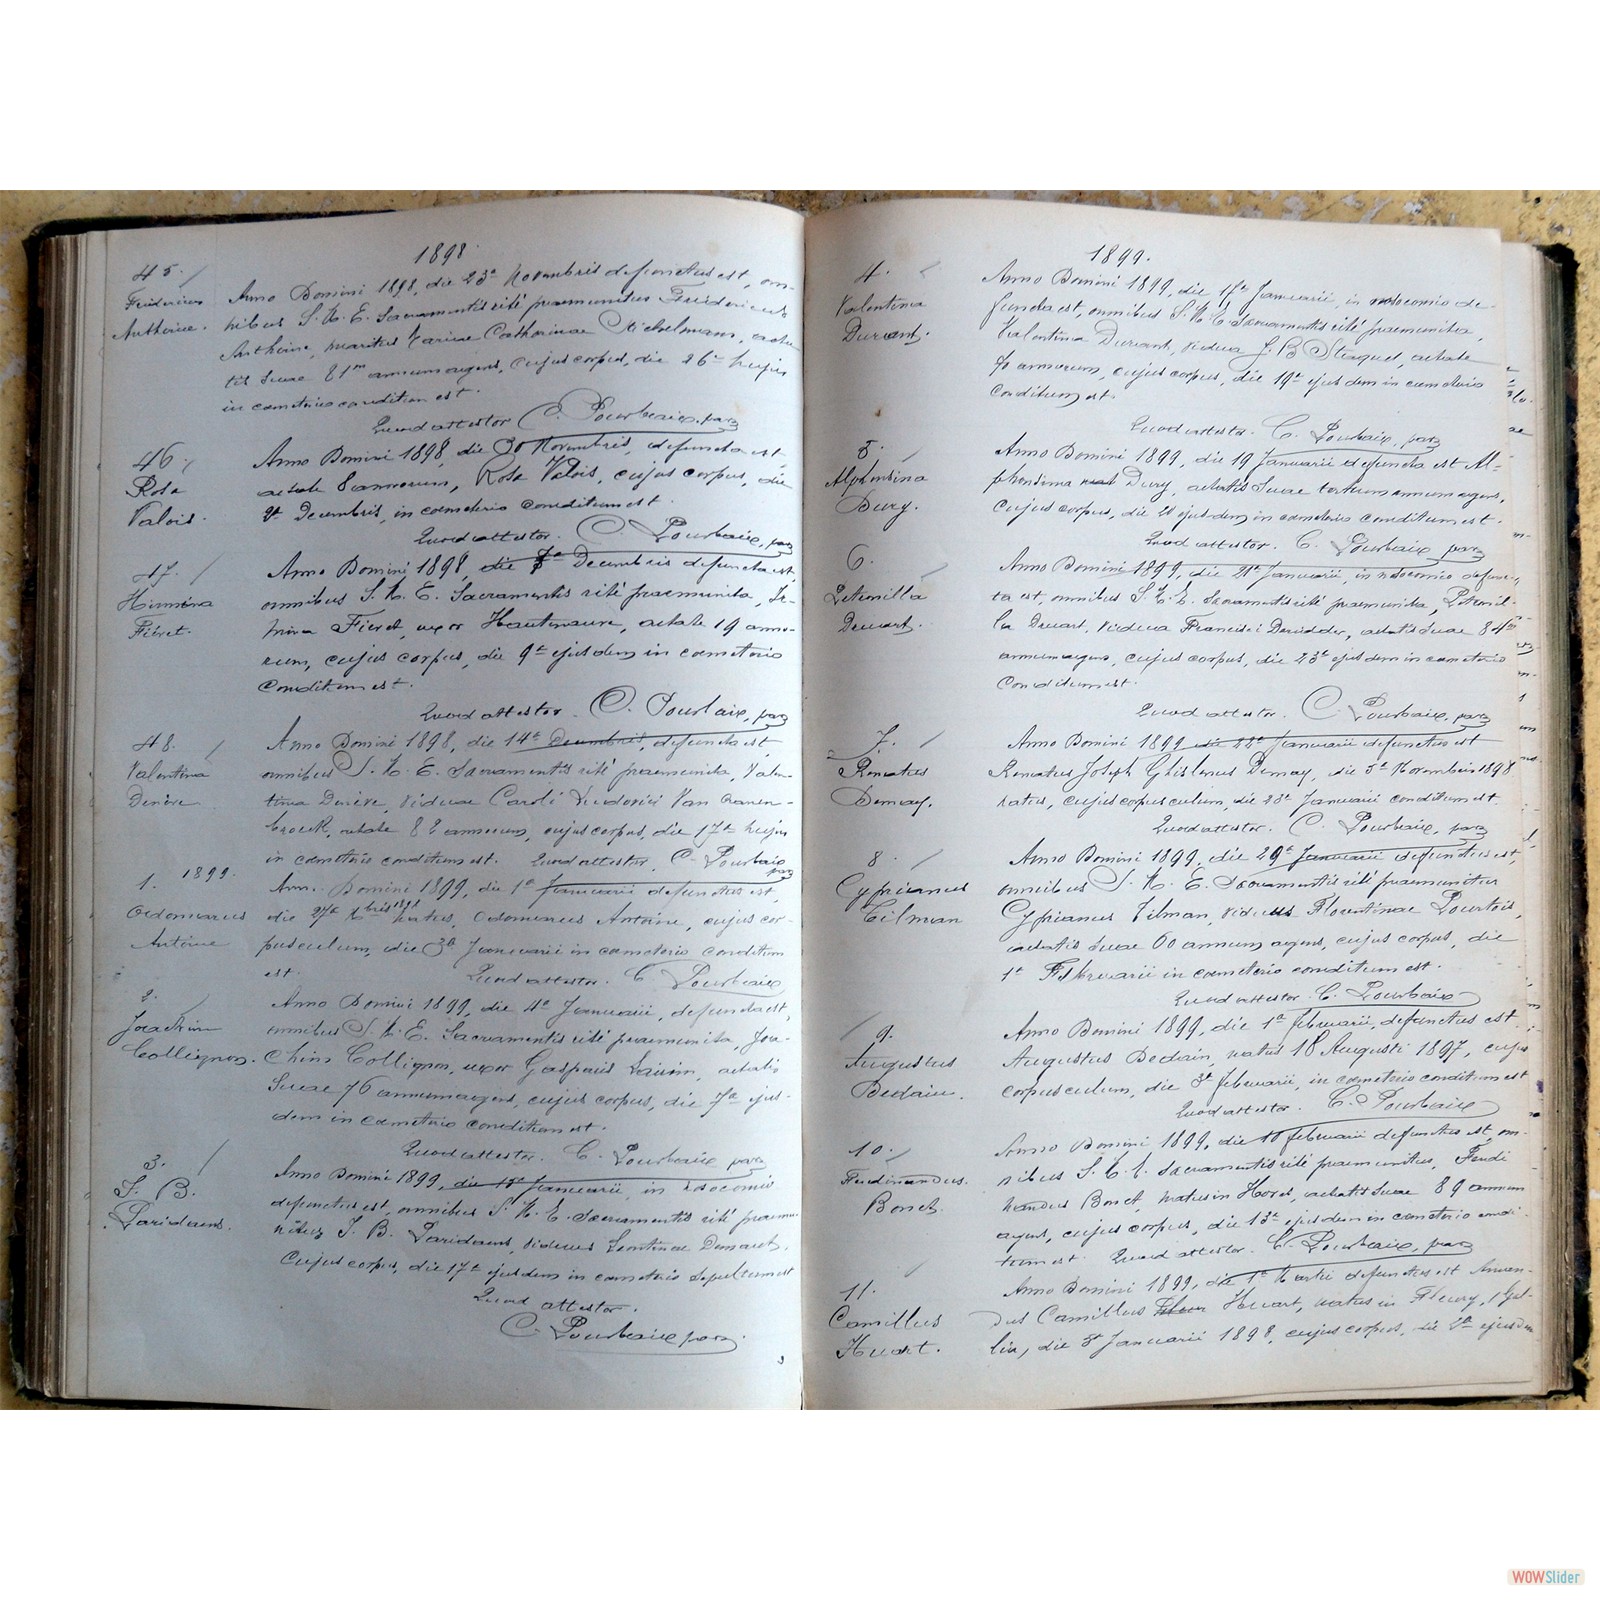 1898.
45.
Fridericus
Antheine.
Anno Domini 1898, die 23a Novembris defunctus est, om-
nibus S. M. E. Sacramentis rité praemunitus Fridericus
Antheine, maritus Mariae Catharinae, aeta-
tis suae 81m annum agens, cujus corpus, die 26a hujus
in cometerio conditum est.
Quod attestor C. Pourbaix, par
46.
Rosa
Valois.
Anno Domini 1898, die 30 Novembris, defuncta est,
aetate 8 annorum, Rosa Valois, cujus corpus, die
Decembris, in cometerio conditum est.
Quod attestor. C. Pourbaix, par
47.
Fiévet.
Anno Domini 1898, die Decembris defuncta est,
omnibus S. M. E. Sacramentis rité praemunita,
Fievet, uxor Hautenauve, aetate 19 anno-
rum, cujus corpus, die 9a ejusdem in cometerio
conditum est.
Quod attestor. C. Pourbaix, par
48.
Valentina
Denève
Anno Domini 1898, die 14a Decembris, defuncta est
omnibus S. M. E. Sacramentis rité praemunita, Valen-
tina Denève, viduae Caroli Ludovici Van Cranen-
brouck, aetate 82 annorum, cujus corpus, die 17a hujus
in cometerio conditum est. Quod attestor. C. Pourbaix
par
1. 1899.
Odomarus
Antoine
Anno Domini 1899, die 1a Januarii defunctus est,
die 27a Xbris 1898 natus, Odomarus Antoine, cujus cor-
pusculum, die 3a Januarii in cometerio conditum
est. Quod attestor. C. Pourbaix
2.
Joachim
Collignon.
Anno Domini 1899, die 4a Januarii, defuncta est,
omnibus S. M. E. Sacramentis rité praemunita, Joa-
chim Collignon, uxor Gasparis Laurin, aetatis
suae 76 annum agens, cujus corpus, die 7a ejus-
dem in cometerio conditum est.
Quod attestor. C. Pourbaix par
3.
J. B.
Paridaens.
Anno Domini 1899, die Januarii, in nosocomio
defunctus est, omnibus S. M. E. Sacramentis rité praemu-
nitus J. B. Paridaens, viduus Leontinae Demaret,
cujus corpus, die 17a ejusdem in cometerio sepultum est
Quod attestor.
C. Pourbaix par.
1899.
4.
Valentina
Durant.
Anno Domini 1899, die Januarii, in nosocomio de-
functa est, omnibus S. M. E. Sacramentis rité praemunita,
Valentina Durant, vidua J. B. Staquet, aetate
70 annorum, cujus corpus, die 19a ejusdem in cometerio
conditum est.
Quod attestor. C. Pourbaix, par
5.
Alphonsina
Dury.
Anno Domini 1899, die 19 Januarii defuncta est Al-
phonsina Dury, aetatis suae tertium annum agens,
cujus corpus, die 21 ejusdem in cometerio conditum est.
Quod attestor. C. Pourbaix par
6.
Petronilla
Druart.
Anno Domini 1899, die 21a Januarii, in nosocomio defunc-
ta est, omnibus S. M. E. Sacramentis rité praemunita, Petronil-
la Druart, vidua Francisci Deridder, aetatis suae 84m
annum agens, cujus corpus, die 23a ejusdem in cometerio
conditum est.
Quod attestor. C. Pourbaix, par
7.
Renatus
Demay.
Anno Domini 1899 die 22a Januarii defunctus est
Renatus Joseph Ghislenus Demay, die 5a Novembris 1898
natus, cujus corpusculum, die 23a Januarii conditum est
Quod attestor. C. Pourbaix, par
8.
Cyprianus
Tilman
Anno Domini 1899, die 29a Januarii defunctus est,
omnibus S. M. E. Sacramentis rité praemunitus
Cyprianus Tilman, viduus Florentinae Pourtois,
aetatis suae 60 annum agens, cujus corpus, die
1a Februarii in cometerio conditum est.
Quod attestor. C. Pourbaix
9.
Augustus
Dedain.
Anno Domini 1899, die 1a februarii, defunctus est
Augustus Dedain, natus 18 Augusti 1897, cujus
corpusculum, die 3a februarii, in cometerio conditum est
Quod attestor. C. Pourbaix
10.
Ferdinandus.
Bonet.
Anno Domini 1899, die 10 februarii defunctus est, om-
nibus S. M. E. Sacramentis rité praemunitus, Ferdi
nandus Bonet, natus in Hoves, aetatis suae 89 annum
agens, cujus corpus, die 13a ejusdem in cometerio condi-
tum est. Quod attestor. C. Pourbaix, par
11.
Camillus
Huart.
Anno Domini 1899, die 1a Martii defunctus est
dus Camillus Huart, natus in Fleury,
die 3a Januarii 1898, cujus corpus, die ejusdem
WOWSlider